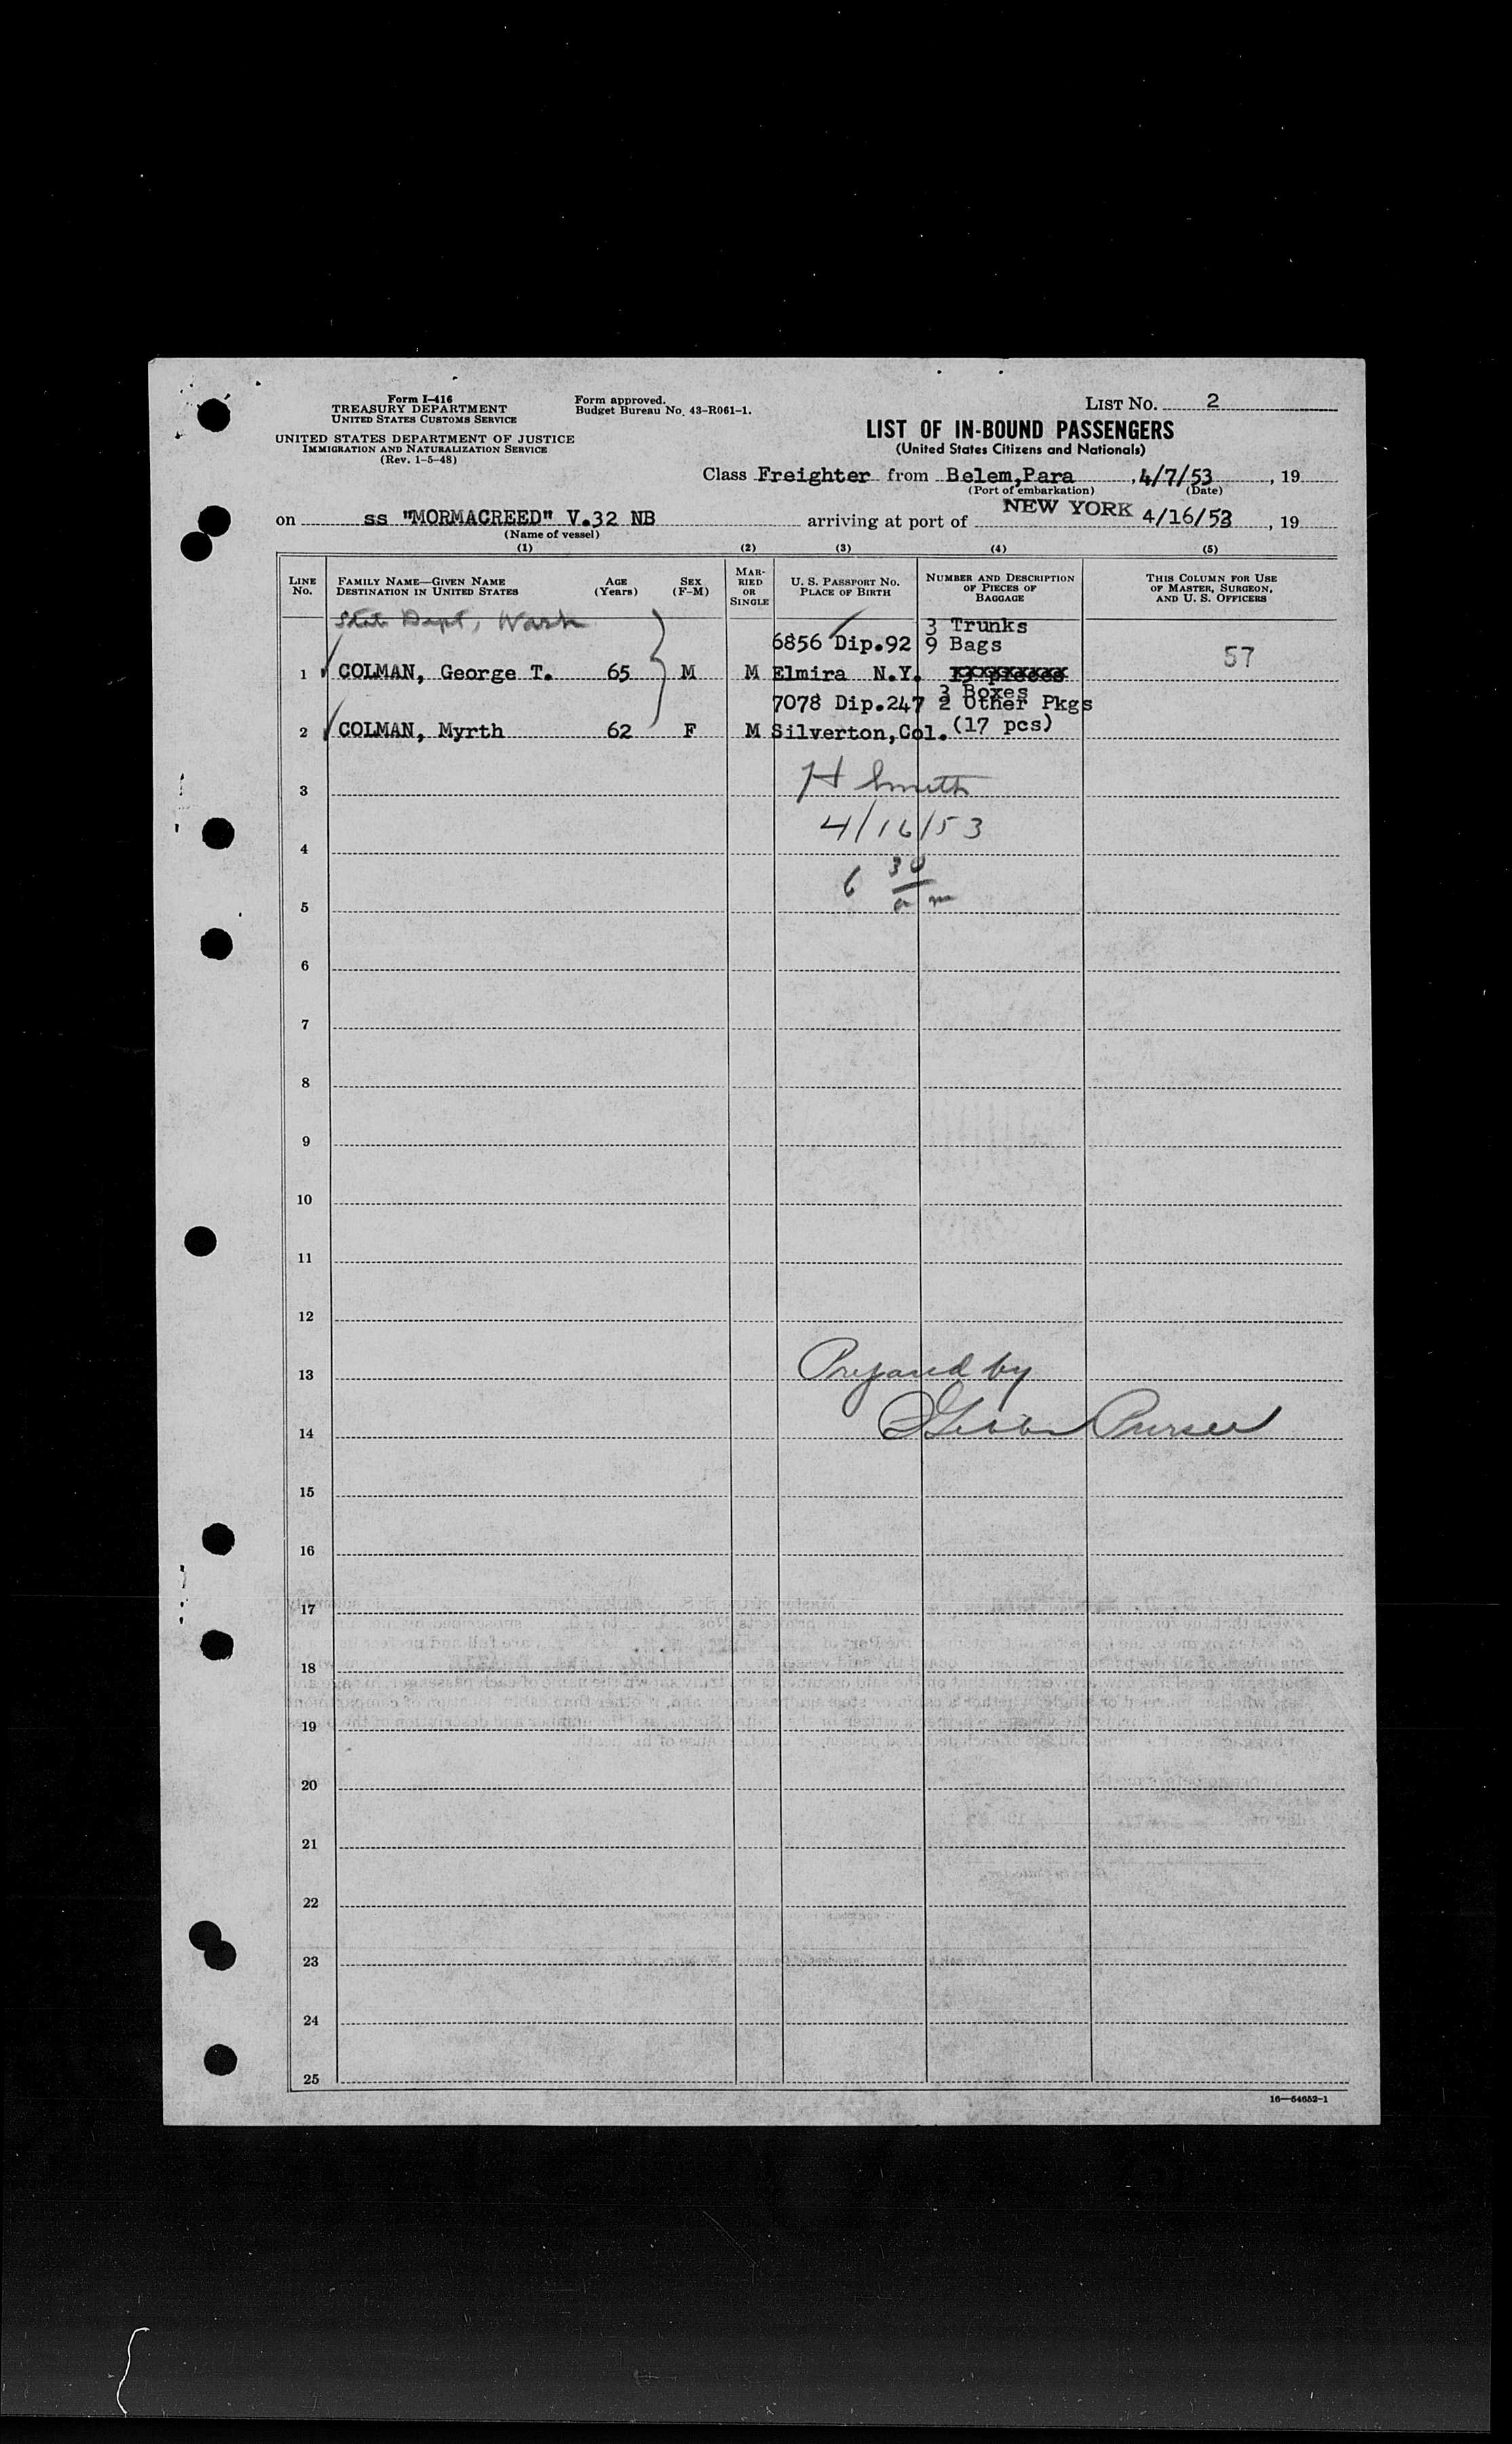 Form I-416
TREASURY DEPARTMENT
UNITED STATES CUSTOMS SERVICE
Form approved.
Budget Bureau No. 43-R061-1.
LIST NO. 2
UNITED STATES DEPARTMENT OF JUSTICE
IMMIGRATION AND NATURALIZATION SERVICE
(Rev. 1-5-48)
LIST OF IN-BOUND PASSENGERS
(United States Citizens and Nationals)
Class Freighter from Belem,Para , 4/7/53 , 19
(Port of embarkation) (Date)
on ss "MORMACREED" V.32 NB arriving at port of NEW YORK 4/16/53 , 19
(Name of vessel)
(1) (2) (3) (4) (5)
LINE NO.
FAMILY NAME—GIVEN NAME
DESTINATION IN UNITED STATES
AGE
(Years)
SEX
(F-M)
MARRIED OR SINGLE
U. S. PASSPORT NO.
PLACE OF BIRTH
NUMBER AND DESCRIPTION
OF PIECES OF
BAGGAGE
THIS COLUMN FOR USE
OF MASTER, SURGEON,
AND U. S. OFFICERS
State Dept, Wash
3 Trunks
6856 Dip.92 9 Bags
1 COLMAN, George T. 65 M M Elmira N.Y. 57
3 Boxes
7078 Dip.247 2 Other Pkgs
2 COLMAN, Myrth 62 F M Silverton,Col. (17 pcs)
3 H Smith
4 4/16/53
5 6 30 am
6
7
8
9
10
11
12
13 Prepared by
14 Purser
15
16
17
18
19
20
21
22
23
24
25
16—54652-1